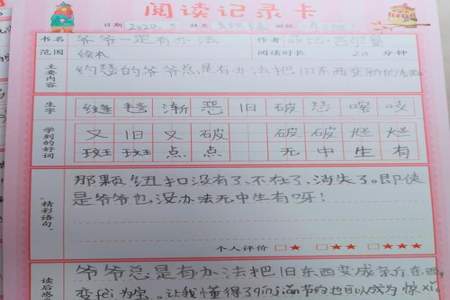 阅读记录卡
日期 2020.
书名 爷爷一定有办法 作者
范围 绘本 阅读时长 20 分钟
主要内容 约瑟的爷爷总是有办法把旧东西变新的东西
生字 缝 毯 渐 恶 旧 破 喀 吱
学到的好词 又 旧 又 破 破 破 烂 烂
斑 斑 点 点 无 中 生 有
精彩语句。 那颗纽扣没有了、不在了、消失了。即使
是爷爷也没办法无中生有呀!
个人评价 □★ □★★ □★★★
读后感 爷爷总是有办法把旧东西变成新东西
变fèi为宝。让我懂得了jié